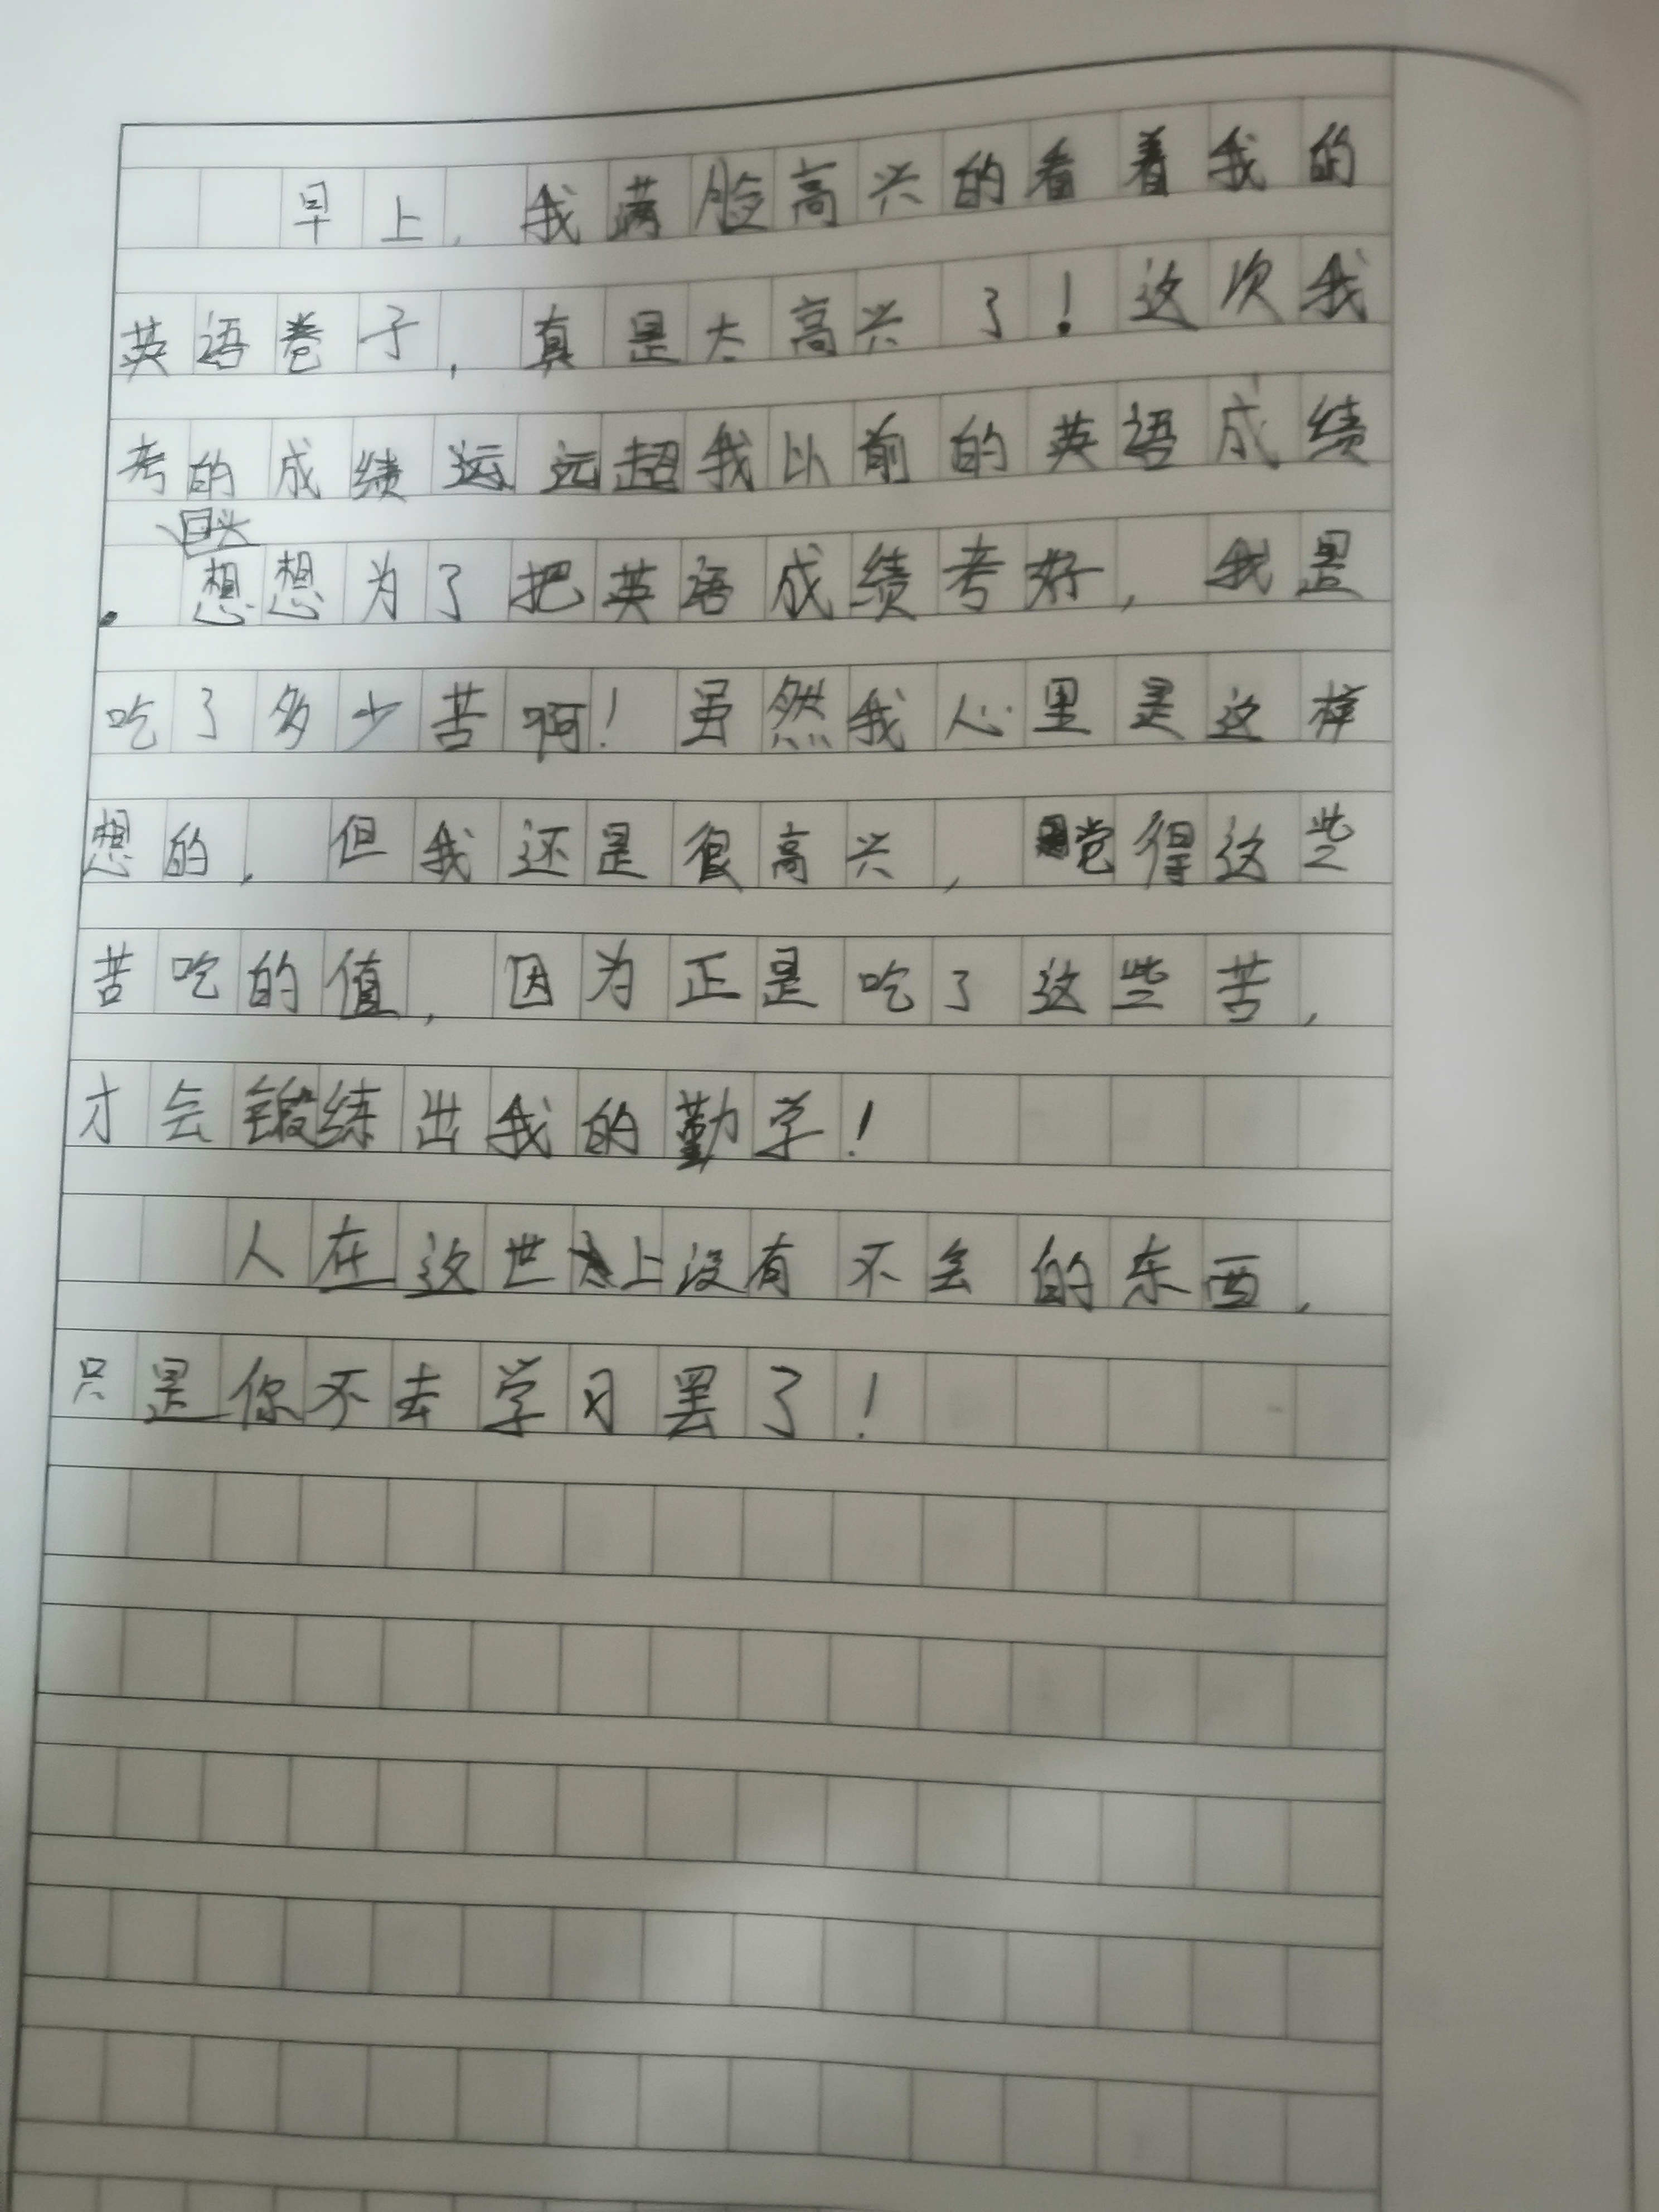 早上，我满脸高兴的看着我的
英语卷子，真是太高兴了！这次我
考的成绩远远超我以前的英语成绩
回头
．想想为了把英语成绩考好，我是
吃了多少苦啊！虽然我心里是这样
想的，但我还是很高兴，觉得这些
苦吃的值，因为正是吃了这些苦，
才会锻练出我的勤学！
人在这世上没有不会的东西，
只是你不去学习罢了！